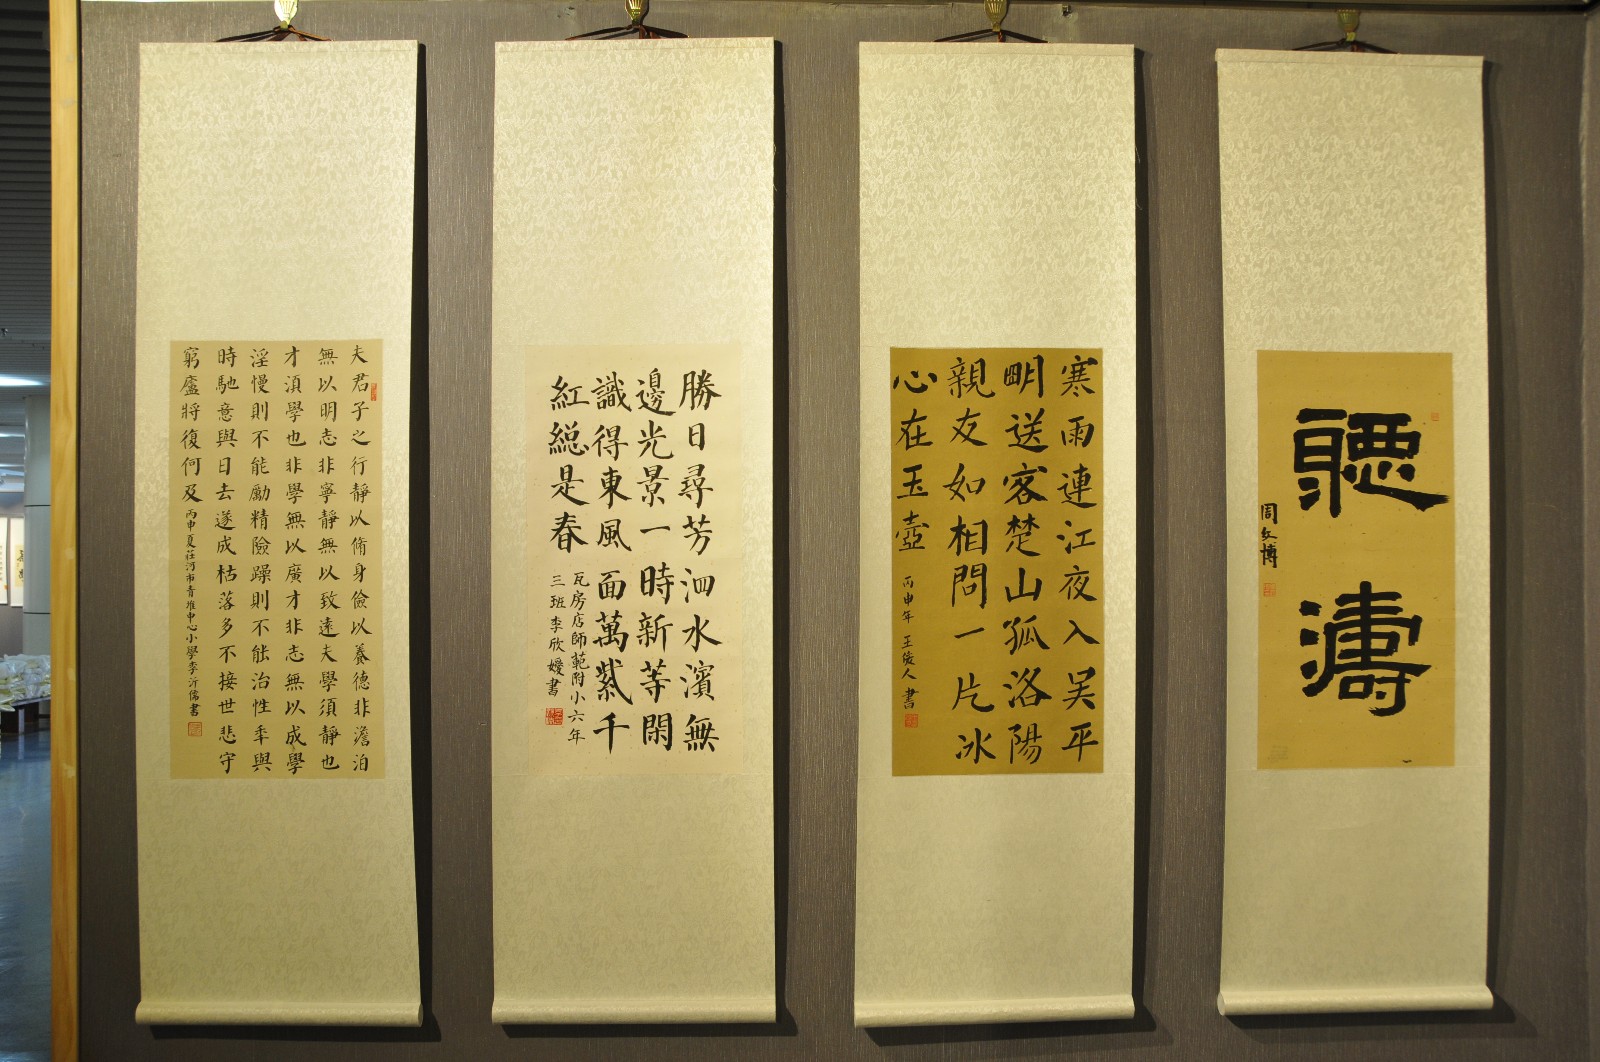 夫君子之行靜以脩身儉以養德非澹泊
無以明志非寧靜無以致遠夫學須靜也
才須學也非學無以廣才非志無以成學
淫慢則不能勵精險躁則不能治性年與
時馳意與日去遂成枯落多不接世悲守
窮廬將復何及 丙申夏莊河市青堆中心小學李沂儒書
勝日尋芳泗水濱無
邊光景一時新等閑
識得東風面萬紫千
紅縂是春
瓦房店師範附小六年
三班李欣嬡書
寒雨連江夜入吴平
明送客楚山孤洛陽
親友如相問一片冰
心在玉壺 丙申年 王俊人書
聽濤
周文博